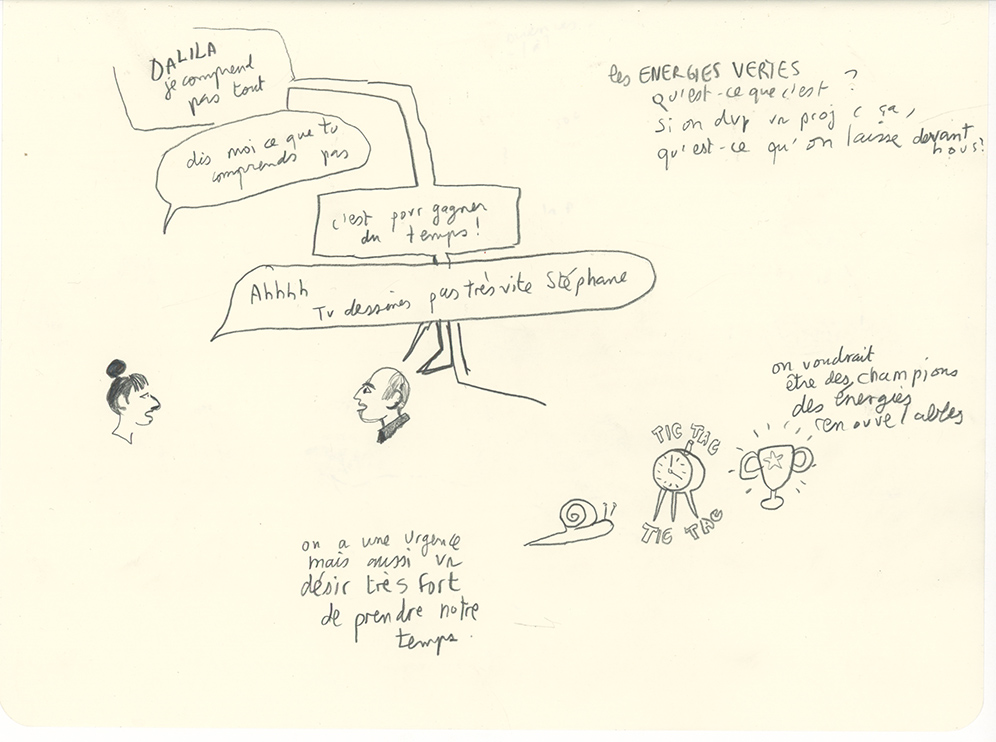 DALILA
je comprend
pas tout
dis moi ce que tu
comprends pas
c'est pour gagner
du temps!
Ahhhh
Tu dessines pas très vite Stéphane
les ENERGIES VERTES
Qu'est-ce que c'est ?
Si on dvp un proj c ça,
qu'est-ce qu'on laisse devant
nous?
on voudrait
être des champions
des énergies
renouvelables
TIC TAC
TIC TAC
on a une urgence
mais aussi un
désir très fort
de prendre notre
temps.